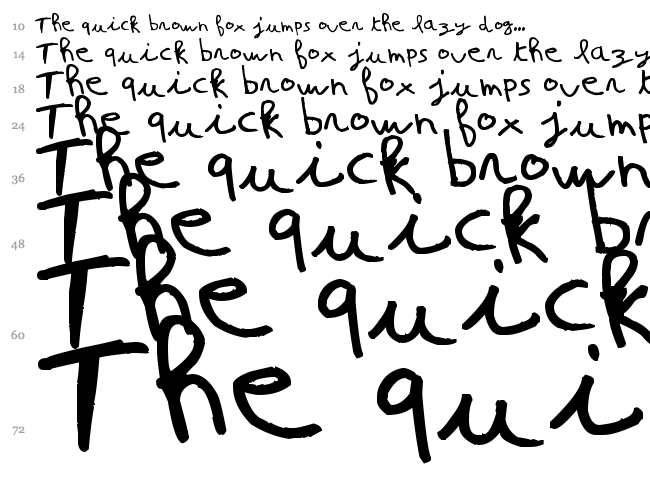 10 The quick brown fox jumps over the lazy dog...
14 The quick brown fox jumps over the lazy
18 The quick brown fox jumps over t
24 The quick brown fox jump
36 The quick brown
48 The quick br
60 The quick
72 The qui